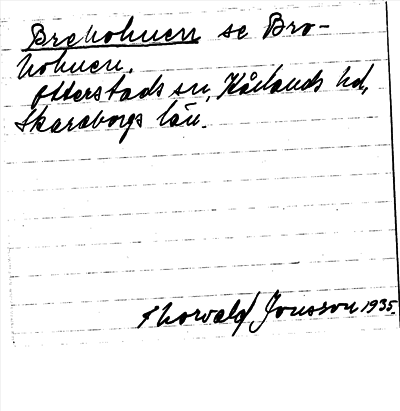 Breholmen se Bro-
holmen.
Otterstads sn, Kållands hd,
Skaraborgs län.
Thorvald Jonsson 1935.